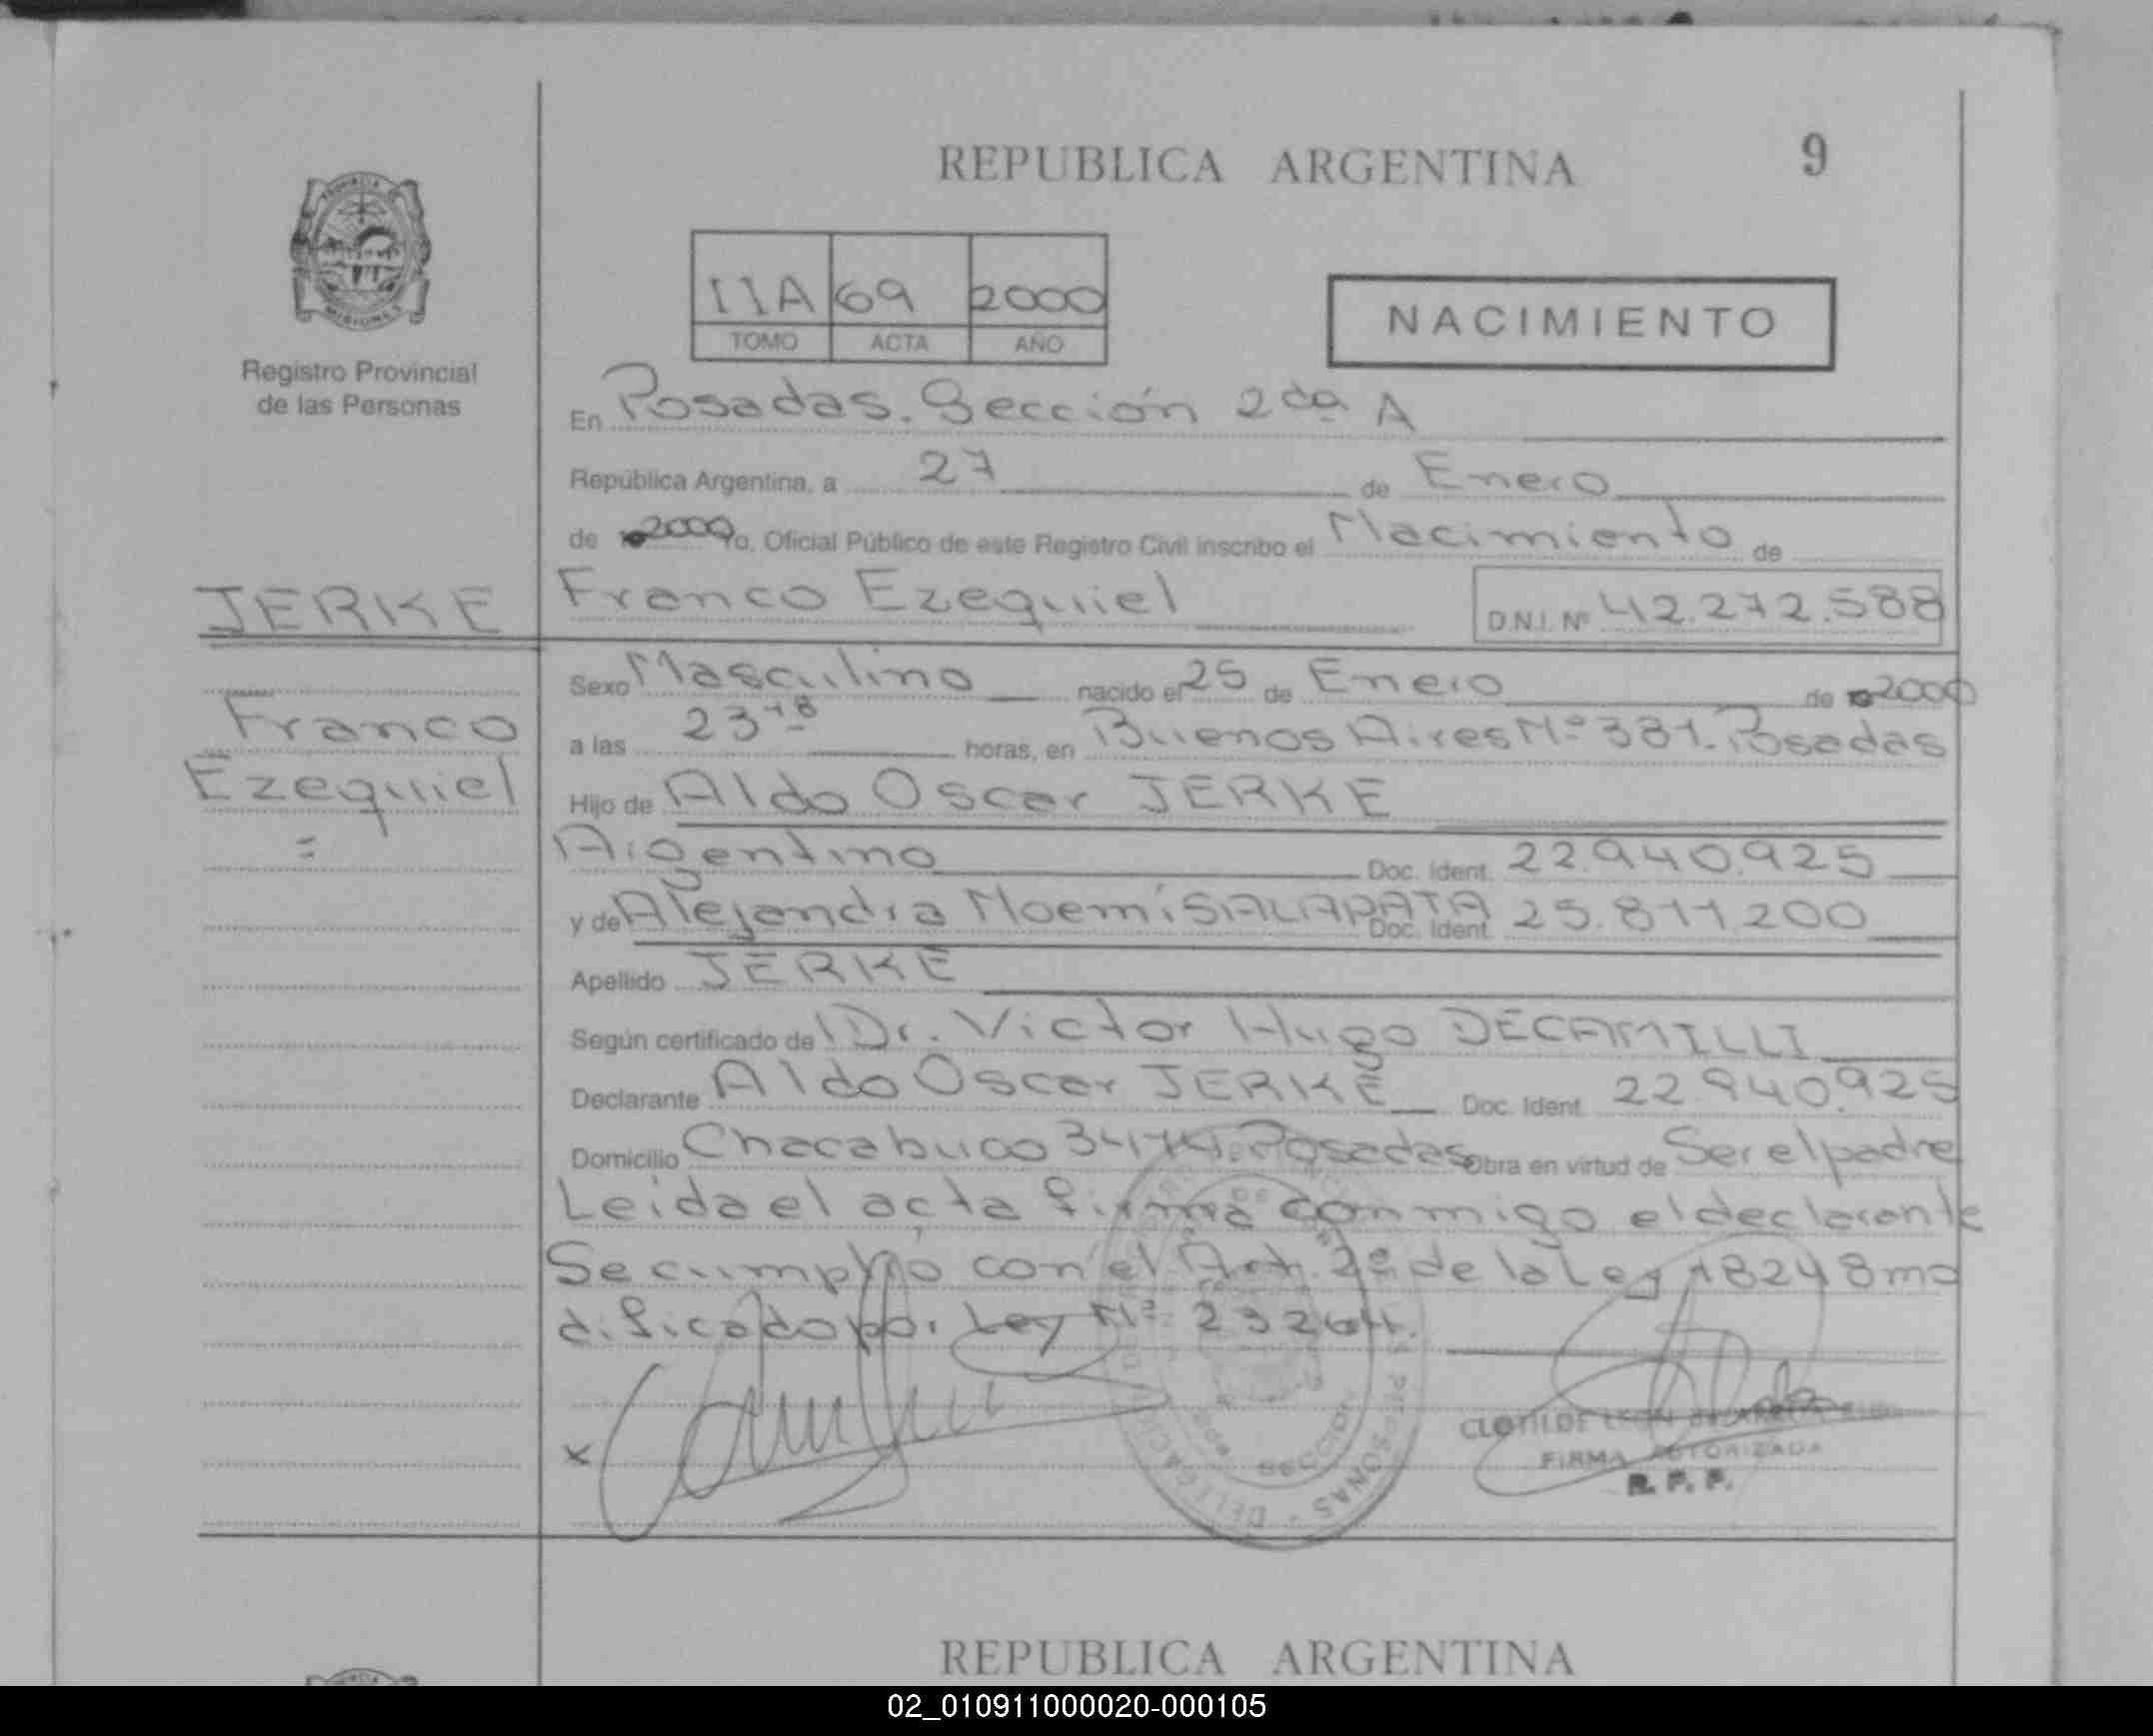 REPUBLICA ARGENTINA 9
PROVINCIA
MISIONES
Registro Provincial
de las Personas
IIA 69 2000
TOMO ACTA AÑO
NACIMIENTO
En Posadas. Sección 2da A
República Argentina, a 27 de Enero
de 2000 Yo, Oficial Público de este Registro Civil inscribo el Nacimiento de
JERKE Franco Ezequiel D.N.I. Nº 42.272.588
Sexo Masculino nacido el 25 de Enero de 2000
Franco a las 23 18 horas, en Buenos Aires Nº 381. Posadas
Ezequiel Hijo de Aldo Oscar JERKE
= Argentino Doc. Ident. 22.940.925
y de Alejandra Noemí SALAPATA Doc. Ident. 25.811.200
Apellido JERKE
Según certificado de Dr. Victor Hugo DECAMILLI
Declarante Aldo Oscar JERKE Doc. Ident. 22.940.925
Domicilio Chacabuco Posadas Obra en virtud de Ser el padre
Leida el acta firma conmigo el declarante
Se cumplió con el Art. 2º de la Ley 18248 mo
dificado por Ley Nº 23264.
x
CLOTILDE
FIRMA AUTORIZADA
R. P. P.
REPUBLICA ARGENTINA
02_010911000020-000105